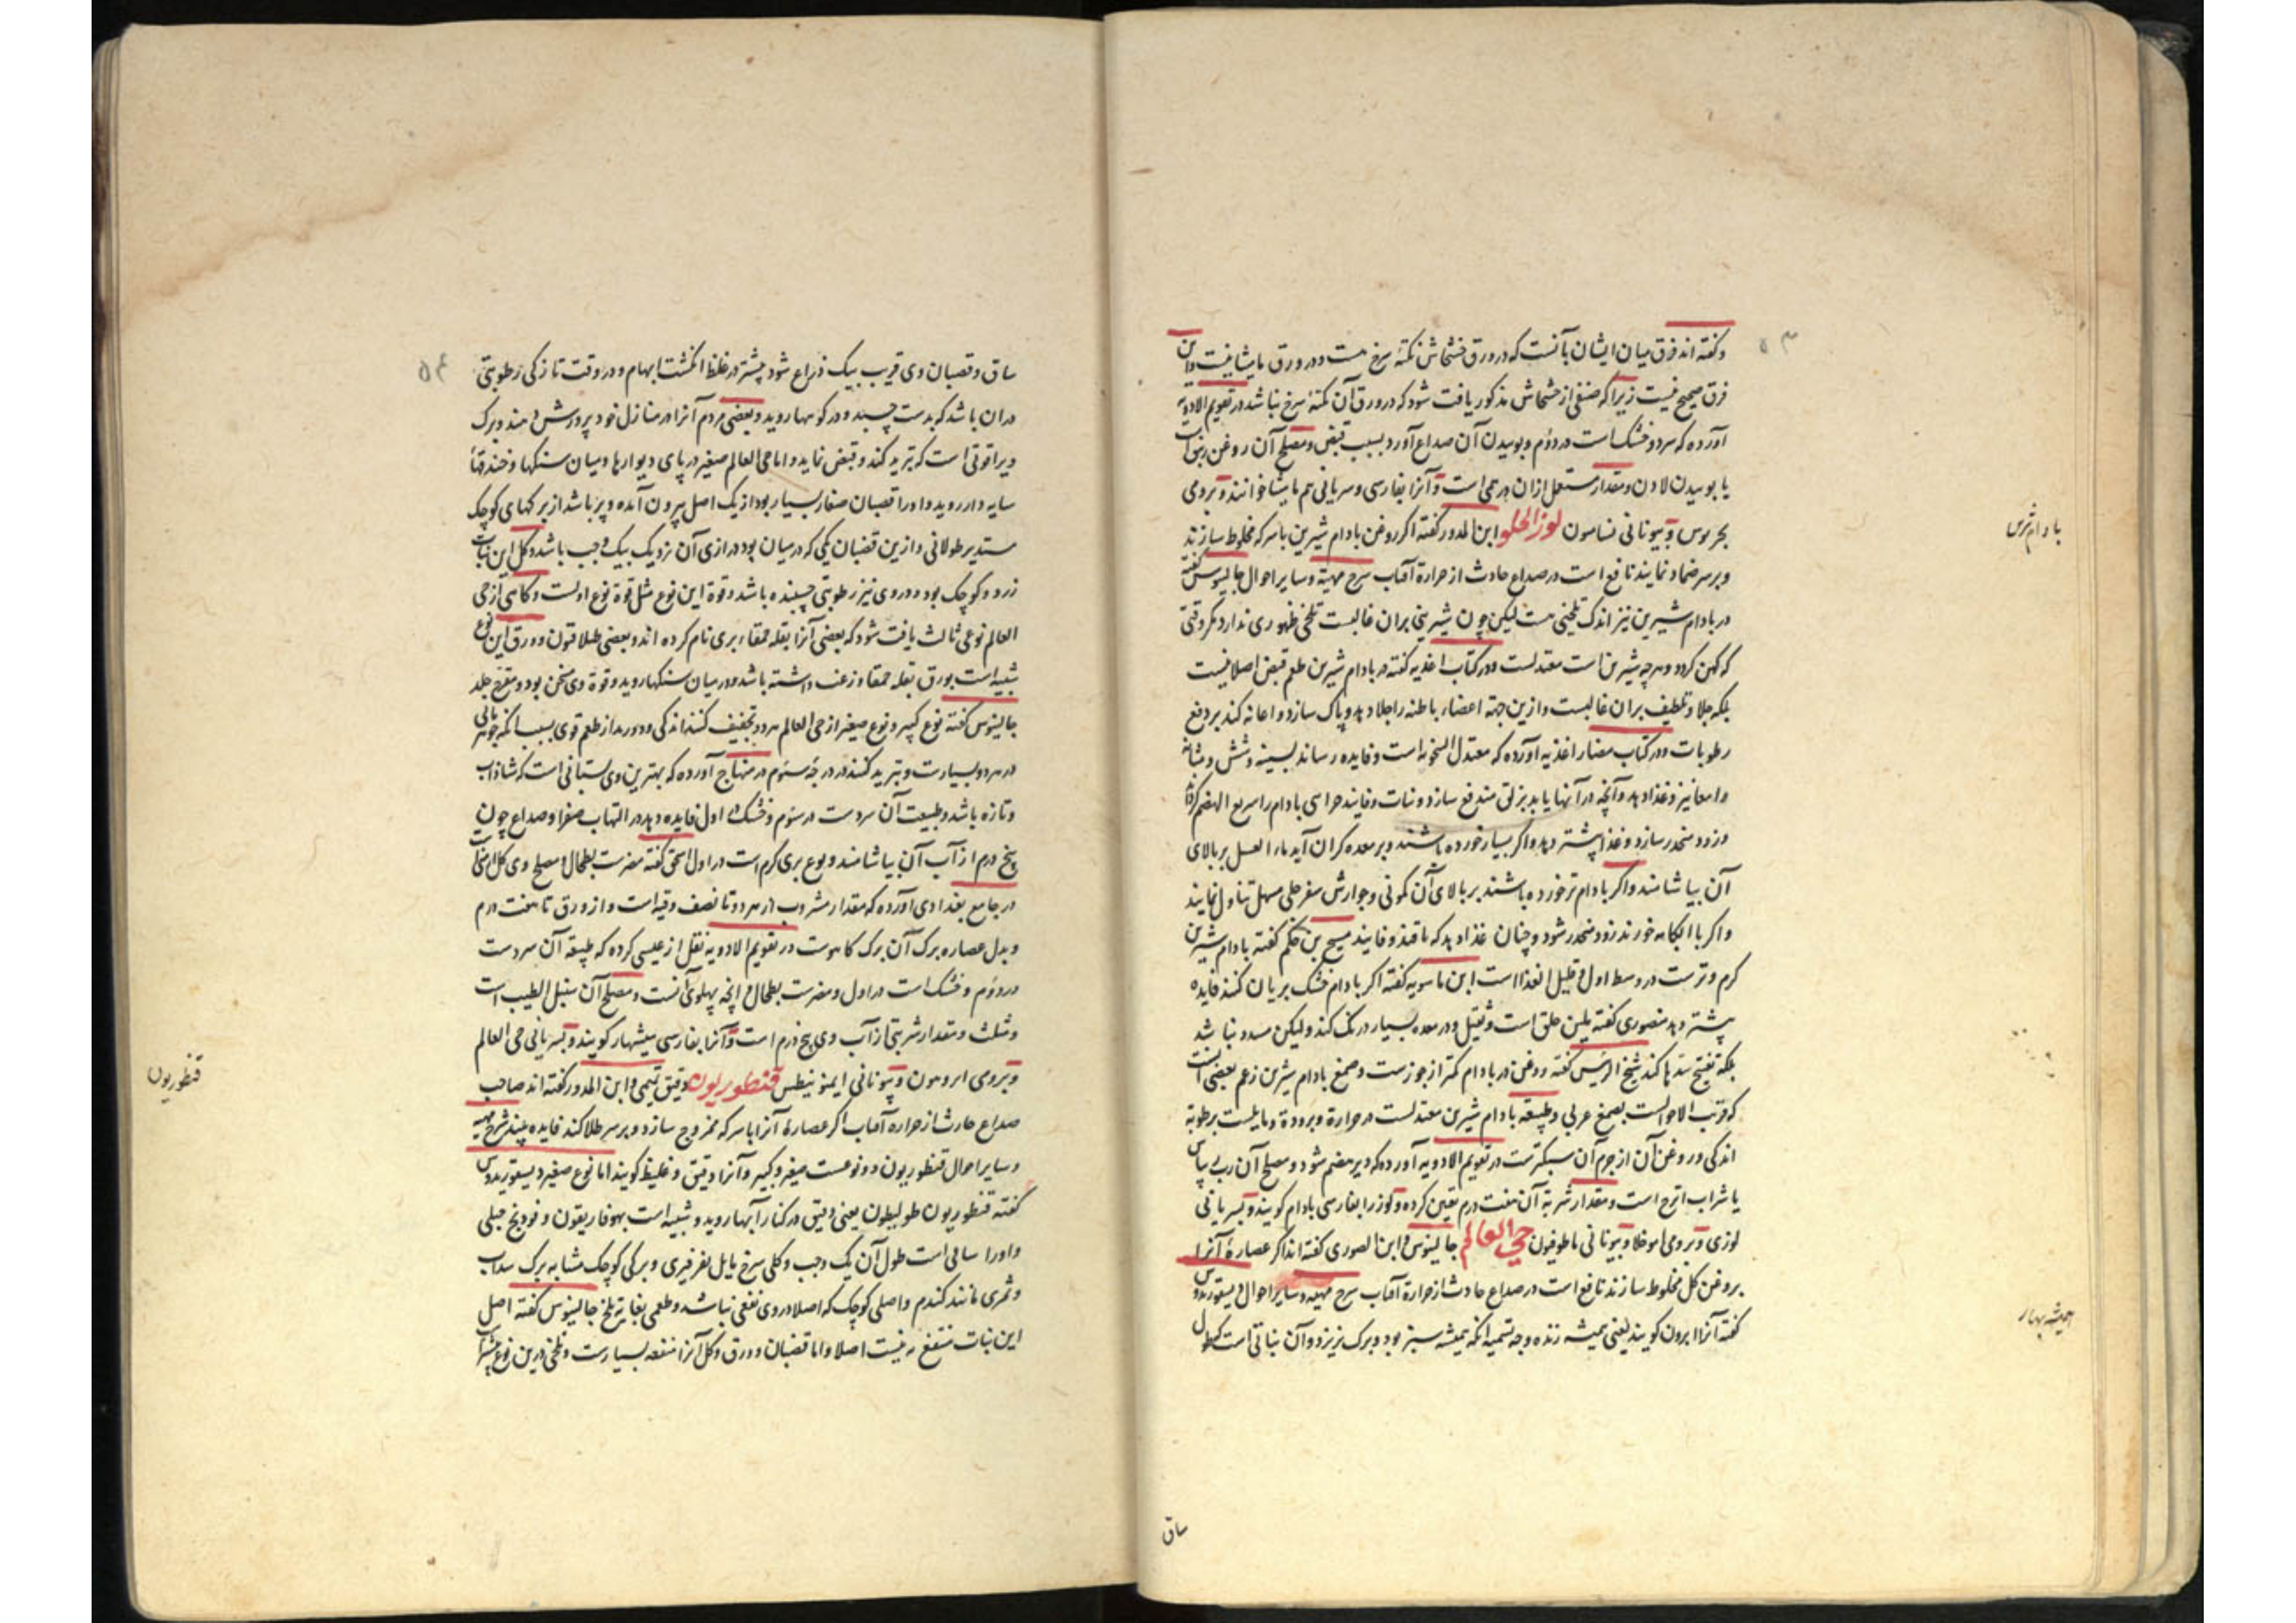 ۵۳
و گفته اند فرق میان ایشان بآنست که در ورق خشخاش نکتهٔ سرخ هست و در ورق مامیثا نیست و این
فرق صحیح نیست زیرا که صنفی از خشخاش مذکور یافت شود که در ورق آن نکتهٔ سرخ نباشد در تقویم الادویه
آورده که سرد و خشک است در دوم و بوییدن آن صداع آورد بسبب قبض و مصلح آن روغن است
یا بوییدن لادن و مقدار مستعمل ازان درهمی است و آنرا بفارسی و سریانی هم مامیثا خوانند و برومی
و بیونانی لوز الحلو ابن المدور گفته اگر روغن بادام شیرین با سرکه مخلوط سازند
بادام شیرین
و بر سر ضماد نمایند نافع است در صداع حادث از حرارة آفتاب شرح مهیة و سایر احوال جالینوس گفته
در بادام شیرین نیز اندک تلخیی هست لیکن چون شیرینی بران غالبست تلخی ظهوری ندارد مگر وقتی
که کهن گردد و هر چه شیرین است معتدلست و در کتاب اغذیه گفته در بادام شیرین طعم قبض اصلا نیست
بلکه جلا و تلطیف بران غالبست و ازین جهة اعضاء باطنه را جلا دهد و پاک سازد و اعانه کند بر دفع
رطوبات و در کتاب مضار اغذیه آورده که معتدل السخونه است و فایده رساند بسینه و شش و مثانه
و امعا نیز و غذا دهد و آنچه در آنها یابد بزلق مندفع سازد و نبات و فانیذ بادام را سریع الهضم کرداند
و زود منحدر سازد و غذا بیشتر دهد و اگر بسیار خورده باشند و بر معده گران آید ماء العسل بر بالای
آن بیاشامند و اگر بادام تر خورده باشند بر بالای آن کمونی و جوارش سفرجلی مسهل تناول نمایند
و اگر با آبکامه خورند زود منحدر شود و چنان غذا دهد که با قند و فانید مسیح بن حکم گفته بادام شیرین
گرم و ترست در وسط اول و قلیل الغذا است ابن ماسویه گفته اگر بادام خشک بریان کنند فایده
بیشتر دهد منصوری گفته ملین حلق است و ثقیل و در معده بسیار درنگ کند و لیکن مسدد نباشد
بلکه تفتیح سدها کند شیخ الرئیس گفته روغن در بادام کمتر از جوز است و صمغ بادام شیرین زعم بعضی آنست
که قریب الاحوالست بصمغ عربی و طبیعة بادام شیرین معتدلست در حرارة و برودة و مایلست برطوبة
اندکی و روغن آن از جرم آن سبکترست در تقویم الادویه آورده که دیر هضم شود و مصلح آن رب
یا شراب اترج است و مقدار شربة آن هفت درم تعیین کرده و لوز را بفارسی بادام گویند و بسریانی
لوزی و برومی و بیونانی حی العالم جالینوس و ابن الصوری گفته اند اگر عصارهٔ آنرا
بروغن گل مخلوط سازند نافع است در صداع حادث از حرارة آفتاب شرح مهیة و سایر احوال دیسقوریدوس
همیشه بهار
گفته آنرا ابرون گویند یعنی همیشه زنده وجه تسمیه آنکه همیشه سبز بود و برگ نریزد و آن نباتی است که طول
ساق
۵۴
ساق و قضبان وی قریب بیک ذراع شود بیشتر در غلظ انگشت ابهام و در وقت تازکی رطوبتی
دران باشد که بدست چسبد و در کوهها روید و بعضی مردم آنرا در منازل خود پرورش دهند و برگ
ویرا قوتی است که تبرید کند و قبض نماید و اما حی العالم صغیر در پای دیوارها و میان سنگها و خندقهاء
سایه دار روید و او را قضبان صغار بسیار بود از یک اصل بیرون آمده و پر باشد از برگهای کوچک
مستدیر طولانی و ازین قضبان یکی که در میان بود درازی آن نزدیک بیک وجب باشد و گل این نبات
زرد و کوچک بود و در وی نیز رطوبتی چسبنده باشد و قوة این نوع مثل قوة نوع اولست و گاهی از حی
العالم نوعی ثالث یافت شود که بعضی آنرا بقله حمقاء بری نام کرده اند و بعضی طلاقون و ورق این نوع
شبیه است بورق بقله حمقا و زغب داشته باشد و در میان سنگها روید و قوة وی مسخن بود و مقرح جلد
جالینوس گفته نوع کبیر و نوع صغیر از حی العالم هر دو تجفیف کنند اندکی و دورند از طعم قوی بسبب آنکه جوهر مائی
در هر دو بسیارست و تبرید کنند در درجهٔ سوم در منهاج آورده که بهترین وی بستانی است که شاداب
و تازه باشد و طبیعت آن سردست در سوم و خشک در اول فایده دهد در التهاب صفرا و صداع چون
پنج درم از آب آن بیاشامند و نوع بری گرم است در اول اسحق گفته مضرست بطحال و مصلح وی گل ارمنی است
در جامع بغدادی آورده که مقدار مشروب از هر دو تا نصف وقیه است و از ورق تا هفت درم
و بدل عصاره برگ آن برگ کاهوست در تقویم الادویه نقل از عیسی کرده که طبیعة آن سردست
در دوم و خشک است در اول و مضرست بطحال و آنچه پهلوی آنست و مصلح آن سنبل الطیب است
و مثلث و مقدار شربتی از آب وی پنج درم است و آنرا بفارسی همیشه بهار گویند و بسریانی حی العالم
و برومی و بیونانی قنطوریون دقیق تمیمی و ابن المدور گفته اند صاحب
قنطوریون
صداع حادث از حرارة آفتاب اگر عصارهٔ آنرا با سرکه ممزوج سازد و بر سر طلا کند فایده بیند شرح مهیة
و سایر احوال قنطوریون دو نوعست صغیر و کبیر و آنرا دقیق و غلیظ گویند اما نوع صغیر دیسقوریدوس
گفته قنطوریون طولیطون یعنی دقیق در کنار آبها روید و شبیه است بهوفاریقون و فودنج جبلی
و او را ساقی است طول آن یک وجب و گلی سرخ مایل بفرفیری و برگی کوچک مشابه برگ سداب
و ثمری مانند گندم و اصلی کوچک که اصلا در وی نفعی نباشد و طعمی بغایة تلخ جالینوس گفته اصل
این نبات منتفع به نیست اصلا و اما قضبان و ورق و گل آنرا منفعه بسیارست و تلخی درین نوع بیشتر است